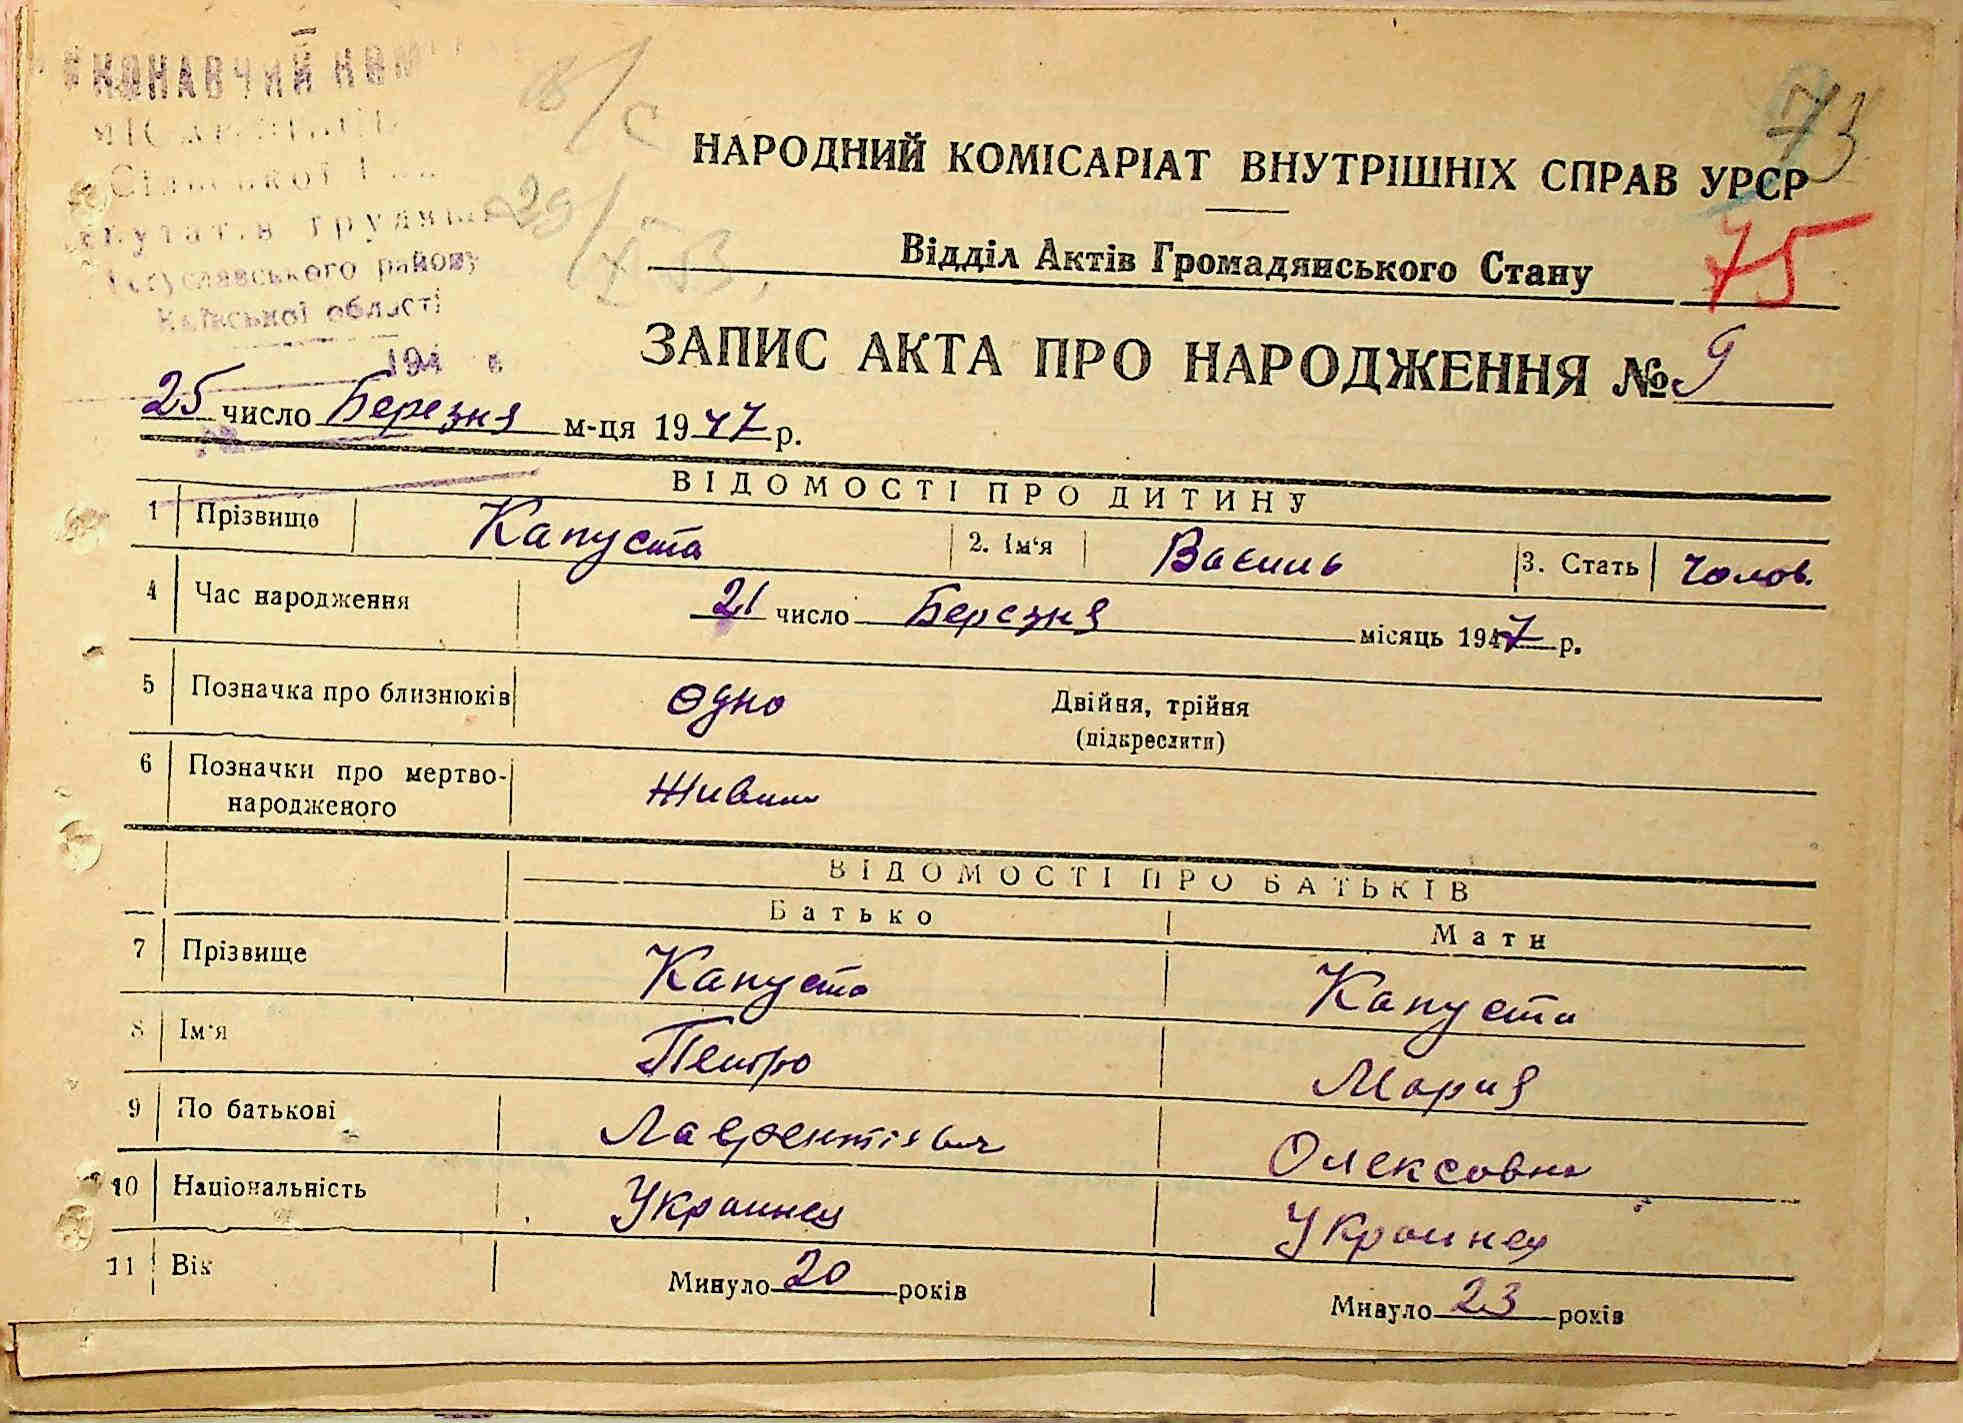 73
НАРОДНИЙ КОМІСАРІАТ ВНУТРІШНІХ СПРАВ УРСР
Відділ Актів Громадянського Стану 75
району
Київської області
194
ЗАПИС АКТА ПРО НАРОДЖЕННЯ № 9
25 число Березня м-ця 1947 р.
ВІДОМОСТІ ПРО ДИТИНУ
1 Прізвище Капуста 2. Ім'я Василь 3. Стать чолов.
4 Час народження 21 число Березня місяць 1947 р.
5 Позначка про близнюків одно Двійня, трійня
(підкреслити)
6 Позначки про мертво-
народженого Живим
ВІДОМОСТІ ПРО БАТЬКІВ
Батько Мати
7 Прізвище Капуста Капуста
8 Ім'я Петро Мария
9 По батькові Лаврентієвич Олексовна
10 Національність Украинец
11 Вік Минуло 20 років Минуло 23 років